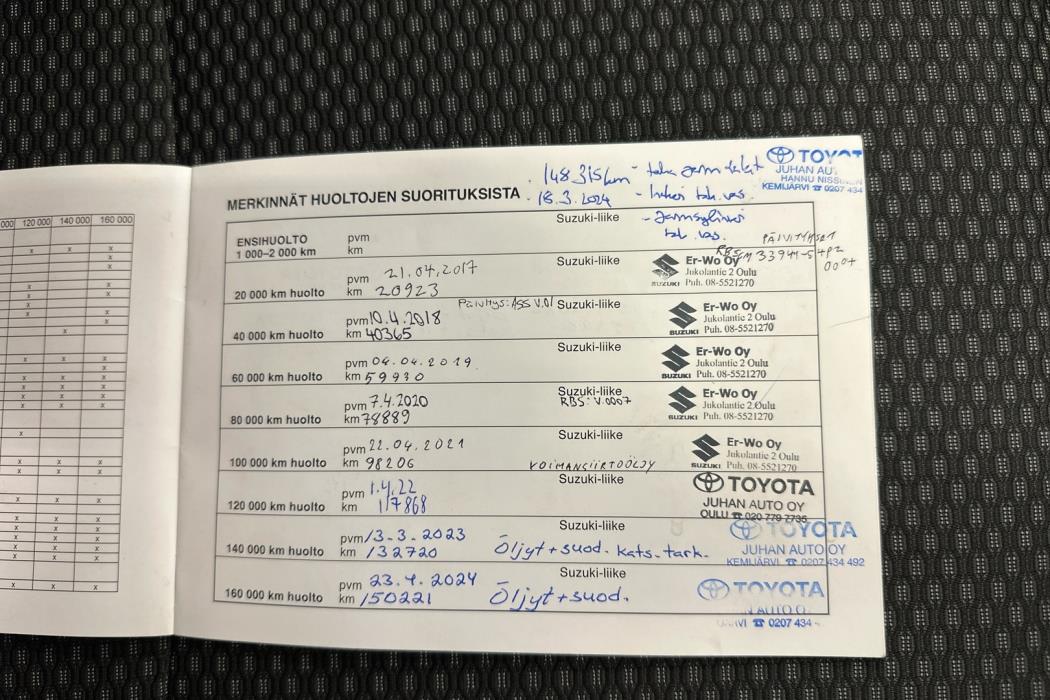 000 120 000 140 000 160 000
MERKINNÄT HUOLTOJEN SUORITUKSISTA
148315km - taka jarru
18.3.2024 - tak. vas.
- Jarrusylinteri
tak. vas.
TOYOT
JUHAN AU
HANNU NISS
KEMIJÄRVI ☎ 0207 434
Suzuki-liike
ENSIHUOLTO pvm
1 000–2 000 km km
PÄIVITYKSET
Suzuki-liike
Er-Wo Oy
pvm 21.04.2017
Jukolantie 2 Oulu
20 000 km huolto km 20923
SUZUKI Puh. 08-5521270
PÄIVITYS: ASS V.01 Suzuki-liike
Er-Wo Oy
pvm 10.4.2018
Jukolantie 2 Oulu
40 000 km huolto km 40365
SUZUKI Puh. 08-5521270
Suzuki-liike
Er-Wo Oy
pvm 04.04.2019
Jukolantie 2 Oulu
60 000 km huolto km 59930
SUZUKI Puh. 08-5521270
Suzuki-liike
Er-Wo Oy
pvm 7.4.2020 RBS: V.0007
Jukolantie 2 Oulu
80 000 km huolto km 78889
SUZUKI Puh. 08-5521270
Suzuki-liike
Er-Wo Oy
pvm 22.04.2021
Jukolantie 2 Oulu
100 000 km huolto km 98206 VOIMANSIIRTOÖLJY
SUZUKI Puh. 08-5521270
Suzuki-liike
TOYOTA
pvm 1.4.22
JUHAN AUTO OY
120 000 km huolto km 117868
OULU ☎ 020 779 7735
Suzuki-liike
TOYOTA
pvm 13.3.2023
140 000 km huolto km 132720 Öljyt + suod. kats. tark.
JUHAN AUTO OY
KEMIJÄRVI ☎ 0207 434 492
Suzuki-liike
TOYOTA
pvm 23.4.2024
160 000 km huolto km 150221 Öljyt + suod.
AUTO O
RVI ☎ 0207 434